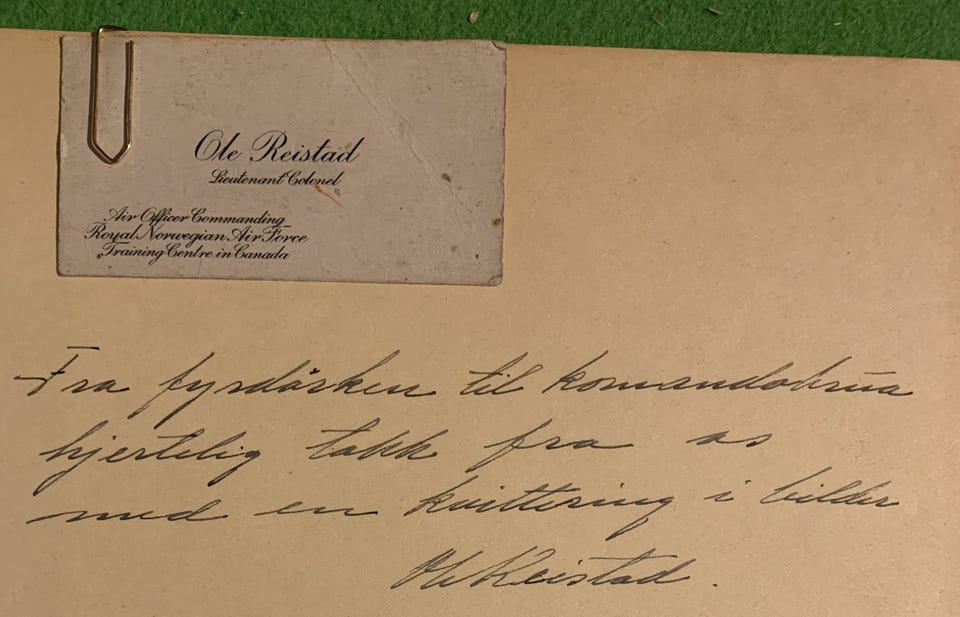 Ole Reistad
Lieutenant Colonel
Air Officer Commanding
Royal Norwegian Air Force
Training Centre in Canada
Fra fyrdørken til komandobrua
hjertelig takk fra os
med en kvittering i bilder
Ole Reistad.